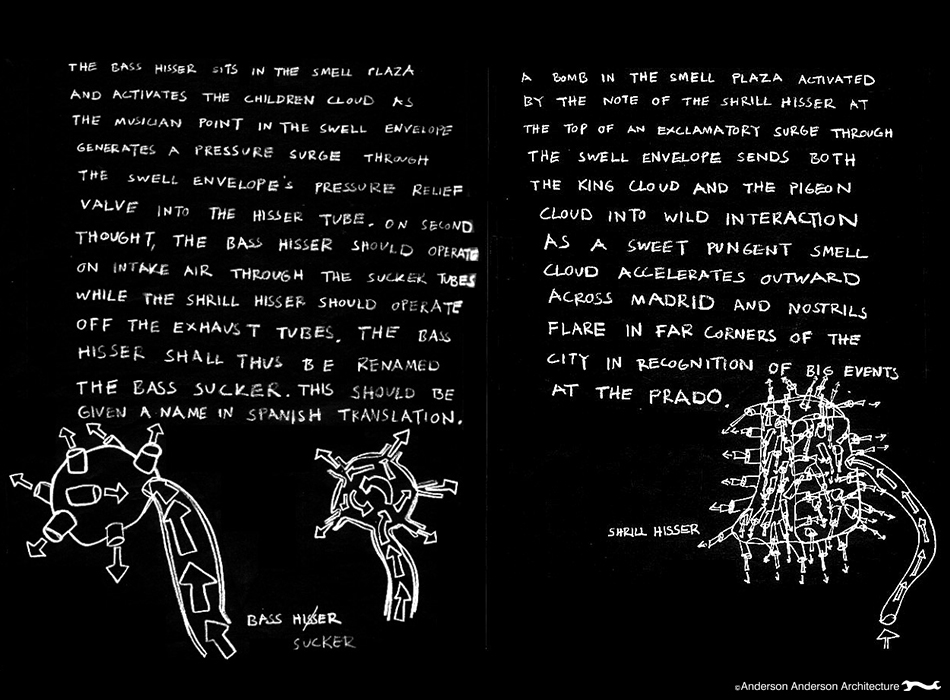 THE BASS HISSER SITS IN THE SMELL PLAZA
AND ACTIVATES THE CHILDREN CLOUD AS
THE MUSICIAN POINT IN THE SWELL ENVELOPE
GENERATES A PRESSURE SURGE THROUGH
THE SWELL ENVELOPE'S PRESSURE RELIEF
VALVE INTO THE HISSER TUBE. ON SECOND
THOUGHT, THE BASS HISSER SHOULD OPERATE
ON INTAKE AIR THROUGH THE SUCKER TUBES
WHILE THE SHRILL HISSER SHOULD OPERATE
OFF THE EXHAUST TUBES. THE BASS
HISSER SHALL THUS BE RENAMED
THE BASS SUCKER. THIS SHOULD BE
GIVEN A NAME IN SPANISH TRANSLATION.
BASS HISSER
SUCKER
A BOMB IN THE SMELL PLAZA ACTIVATED
BY THE NOTE OF THE SHRILL HISSER AT
THE TOP OF AN EXCLAMATORY SURGE THROUGH
THE SWELL ENVELOPE SENDS BOTH
THE KING CLOUD AND THE PIGEON
CLOUD INTO WILD INTERACTION
AS A SWEET PUNGENT SMELL
CLOUD ACCELERATES OUTWARD
ACROSS MADRID AND NOSTRILS
FLARE IN FAR CORNERS OF THE
CITY IN RECOGNITION OF BIG EVENTS
AT THE PRADO.
SHRILL HISSER
©Anderson Anderson Architecture